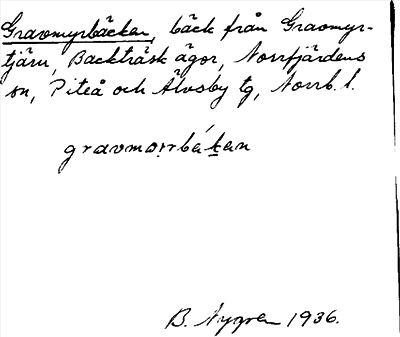 Gravmyrbäcken, bäck från Gravmyr-
tjärn, Backträsk ägor, Norrfjärdens
sn, Piteå och Älvsby tg, Norrb. l.
gravmọrrbákan
B. Nygren 1936.